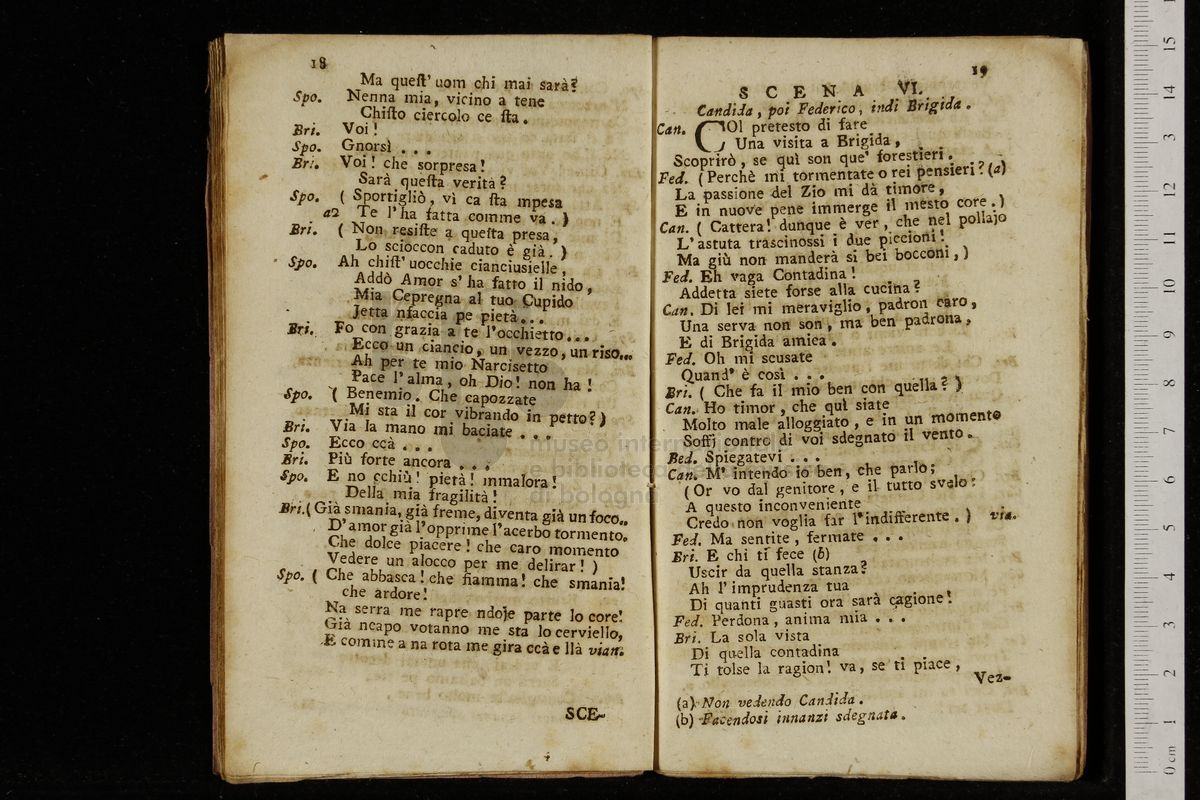 18
Ma queſt' uom chi mai sarà?
Spo. Nenna mia, vicino a tene
Chiſto ciercolo ce ſta.
Bri. Voi!
Spo. Gnorsì . . .
Bri. Voi! che sorpresa!
Sarà queſta verità?
Spo. ( Sportigliò, vì ca ſta mpesa
a2 Te l'ha fatta comme va. )
Bri. ( Non resiſte a queſta presa,
Lo scioccon caduto è già. )
Spo. Ah chiſt' uocchie cianciusielle,
Addò Amor s' ha fatto il nido,
Mia Cepregna al tuo Cupido
Jetta nfaccia pe pietà...
Bri. Fo con grazia a te l'occhietto...
Ecco un ciancio, un vezzo, un riso...
Ah per te mio Narcisetto
Pace l' alma, oh Dio! non ha!
Spo. ( Benemio. Che capozzate
Mi sta il cor vibrando in petto? )
Bri. Via la mano mi baciate . . .
Spo. Ecco ccà . . .
Bri. Più forte ancora . . .
Spo. E no cchiù! pietà! mmalora!
Della mia fragilità!
Bri. ( Già smania, già freme, diventa già un foco..
D'amor già l'opprime l'acerbo tormento.
Che dolce piacere! che caro momento
Vedere un alocco per me delirar! )
Spo. ( Che abbasca! che fiamma! che smania!
che ardore!
Na serra me rapre ndoje parte lo core!
Già ncapo votanno me sta lo cerviello,
E comme a na rota me gira ccà e llà vian.
SCE-
19
SCENA VI.
Candida, poi Federico, indi Brigida.
Can. COl pretesto di fare
Una visita a Brigida,
Scoprirò, se quì son que' forestieri.
Fed. ( Perchè mi tormentate o rei pensieri? (a)
La passione del Zio mi dà timore,
E in nuove pene immerge il mesto core. )
Can. ( Cattera! dunque è ver, che nel pollajo
L'astuta trascinossi i due piccioni!
Ma giù non manderà si bei bocconi, )
Fed. Eh vaga Contadina!
Addetta siete forse alla cucina?
Can. Di lei mi meraviglio, padron caro,
Una serva non son, ma ben padrona,
E di Brigida amica.
Fed. Oh mi scusate
Quand' è così . . .
Bri. ( Che fa il mio ben con quella? )
Can. Ho timor, che quì siate
Molto male alloggiato, e in un momento
Soffj contro di voi sdegnato il vento.
Bed. Spiegatevi . . .
Can. M' intendo io ben, che parlo;
( Or vo dal genitore, e il tutto svelo:
A questo inconveniente
Credo non voglia far l'indifferente. ) via.
Fed. Ma sentite, fermate . . .
Bri. E chi ti fece (b)
Uscir da quella stanza?
Ah l' imprudenza tua
Di quanti guasti ora sarà cagione!
Fed. Perdona, anima mia . . .
Bri. La sola vista
Di quella contadina
Ti tolse la ragion! va, se ti piace,
Vez-
(a) Non vedendo Candida.
(b) Facendosi innanzi sdegnata.